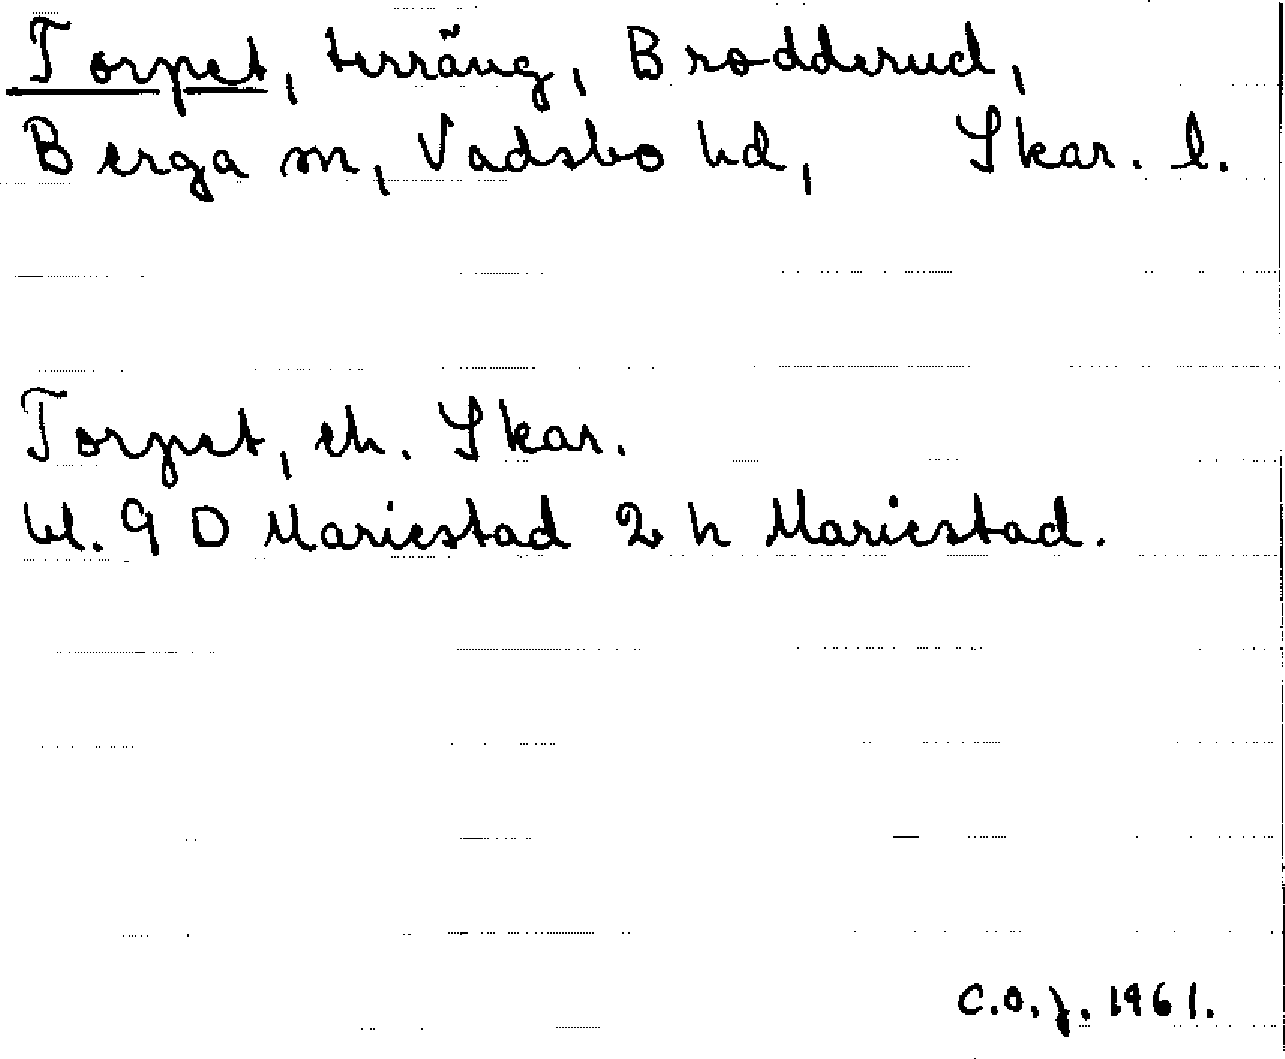 Torpet, terräng, Brodderud,
Berga sn, Vadsbo hd, Skar. l.
Torpet, ek. Skar.
bl. 9 D Mariestad 2 h Mariestad.
C.O.J. 1961.